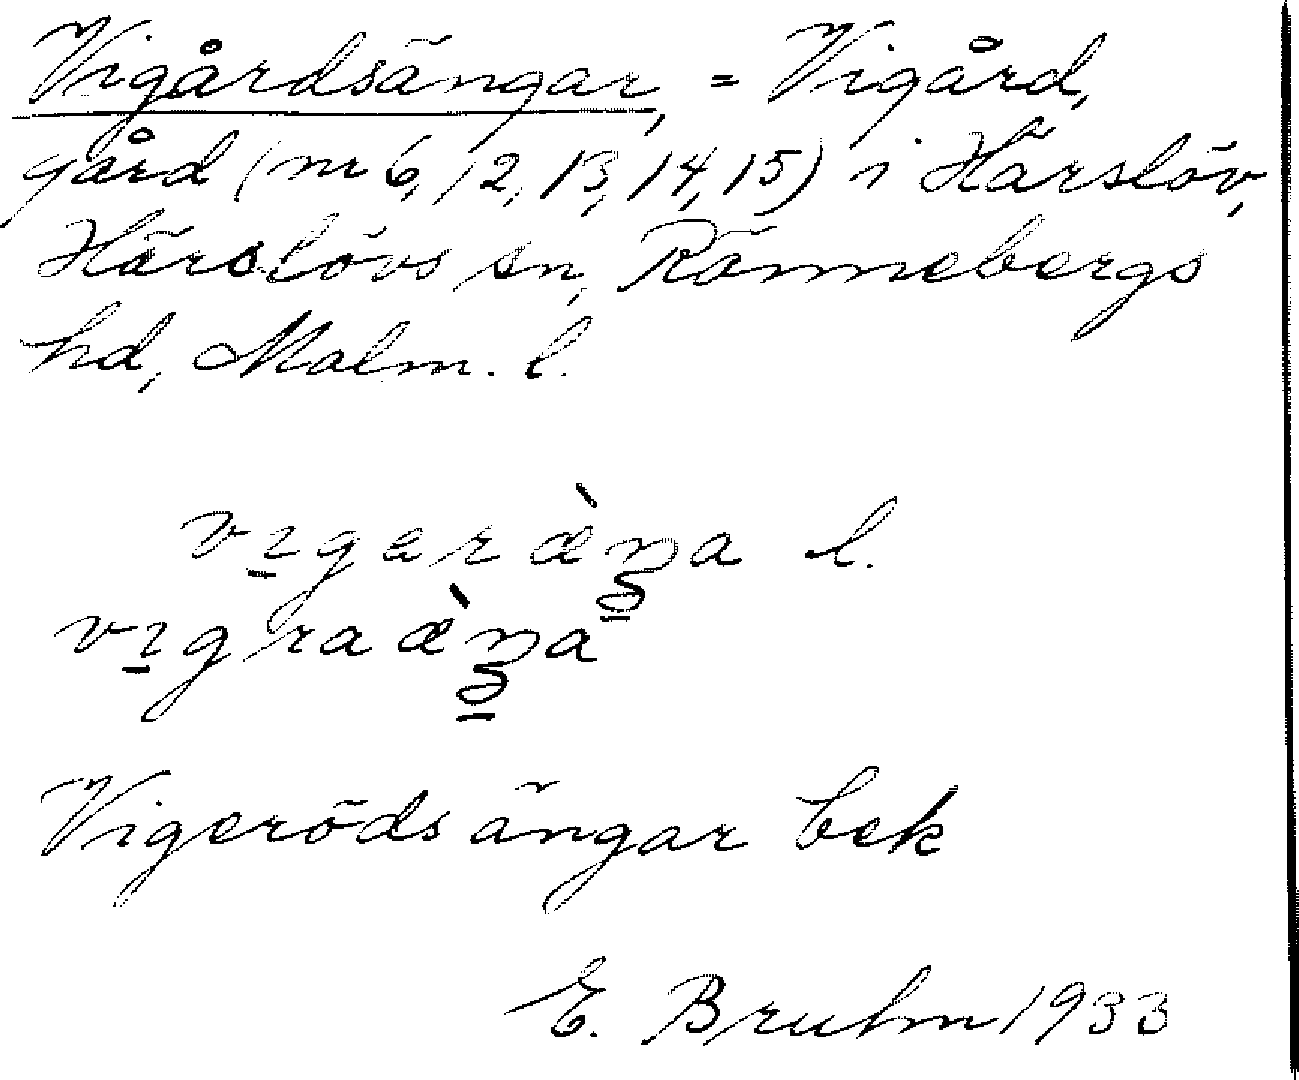 Vigårdsängar, = Vigård,
gård (nr 6, 12, 13, 14, 15) i Härslöv,
Härslövs sn, Rönnebergs
hd, Malm. l.
vıgaræ̀ŋa l.
vıgraæ̀ŋa
Vigerödsängar bek
E. Bruhn 1933